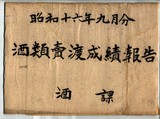 昭和十六年九月分
酒類賣渡成績報告
酒課